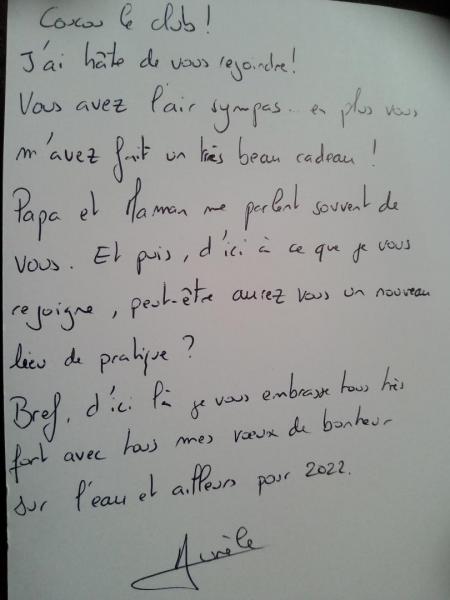 Coucou le club !
J'ai hâte de vous rejoindre !
Vous avez l'air sympas.. en plus vous
m'avez fait un très beau cadeau !
Papa et Maman me parlent souvent de
vous. Et puis, d'ici à ce que je vous
rejoigne, peut-être aurez vous un nouveau
lieu de pratique ?
Bref, d'ici là je vous embrasse tous très
fort avec tous mes vœux de bonheur
sur l'eau et ailleurs pour 2022.
Aurèle